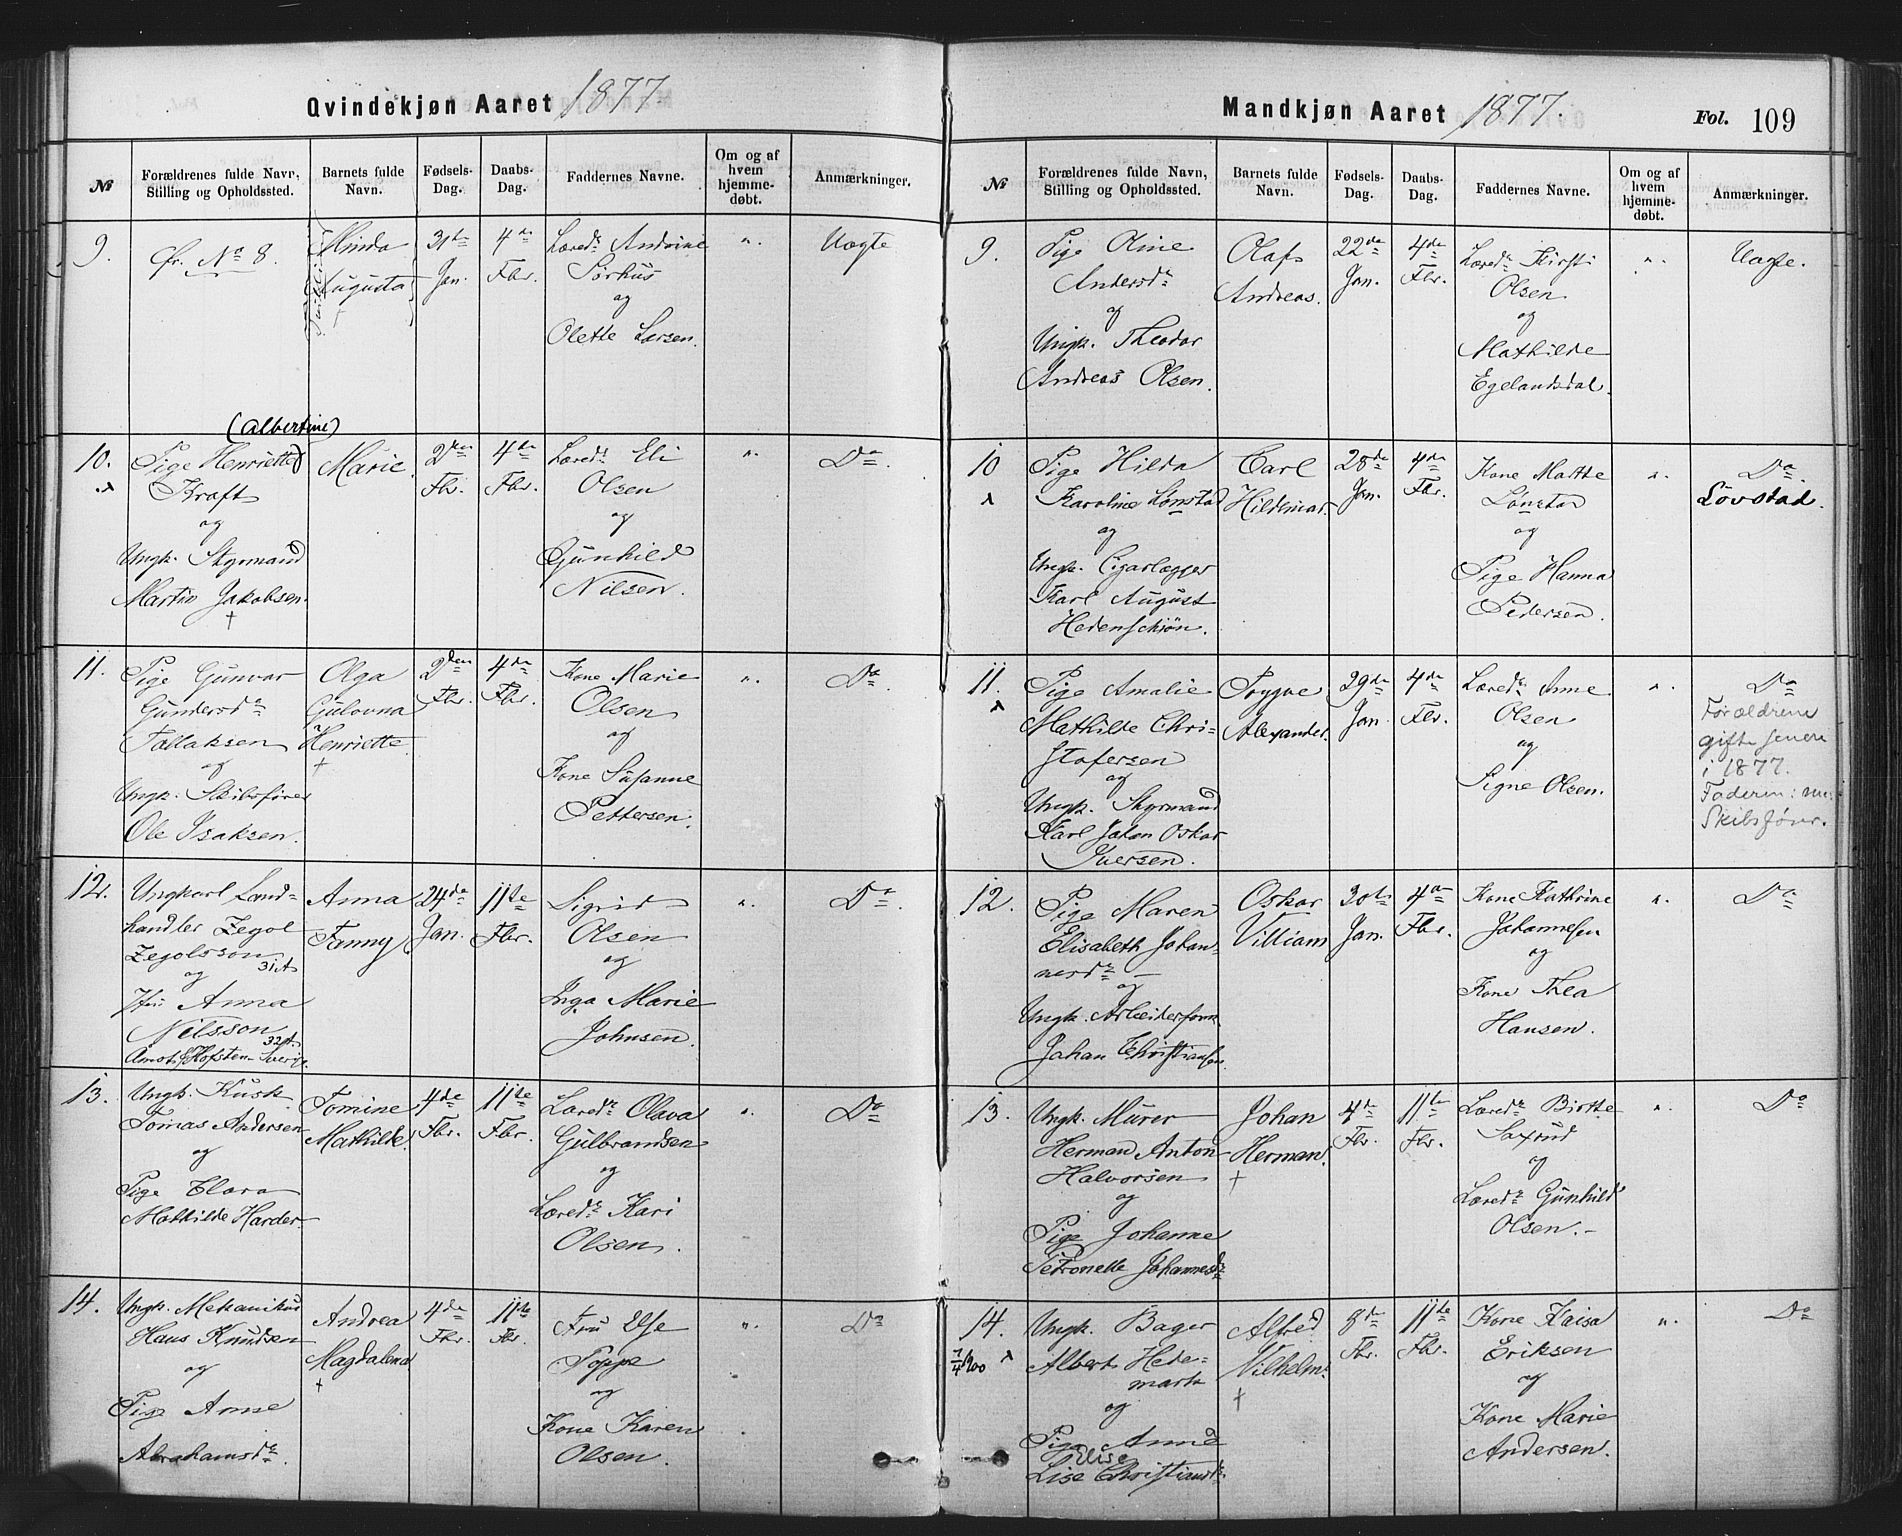 Qvindekjøn Aaret 1877
№
Forældrenes fulde Navn,
Stilling og Opholdssted.
Barnets fulde
Navn.
Fødsels-
Dag.
Daabs-
Dag.
Faddernes Navne.
Om og af
hvem
hjemme-
døbt.
Anmærkninger.
9.
Fr. No 8.
Minda
Augusta
31te
Jan.
4de
Fbr.
Læred. Andrine
Sørhus
og
Olette Larsen.
"
Uægte
10.
(Albertine)
Pige Henriette
Kraft
og
Ungk. Styrmand
Martin Jakobsen.
Marie.
2den
Fbr.
4de
Fbr.
Læred. Eli
Olsen
og
Gunhild
Nilsen.
"
Do.
11.
Pige Gunvor
Gundersd.
Tallaksen
og
Ungk. Skibsfører
Ole Isaksen.
Olga
Gulovna
Henriette.
2den
Fbr.
4de
Fbr.
Kone Marie
Olsen
og
Kone Susanne
Pettersen.
"
Do.
12.
Ungkarl Land-
handler Zegol
Zegolsson
31 A
og
Anna
Nilsson
32 A.
Sverige.
Anna
Fanny
24de
Jan.
11te
Fbr.
Sigrid
Olsen
og
Inga Marie
Johnsen.
"
Do.
13.
Ungk. Kusk
Tomas Andersen
og
Pige Clara
Mathilde Harder.
Tomine
Mathilde.
4de
Fbr.
11te
Fbr.
Læred. Olava
Gulbrandsen
og
Læred. Kari
Olsen.
"
Do
14.
Ungk. Mekanikus
Hans Knudsen
og
Pige Anne
Abrahamsd.
Andrea
Magdalena
4de
Fbr.
11te
Fbr.
Fru Else
Poppe
og
Kone Karen
Olsen.
"
Do
Mandkjøn Aaret 1877.
Fol. 109
№
Forældrenes fulde Navn,
Stilling og Opholdssted.
Barnets fulde
Navn.
Fødsels-
Dag.
Daabs-
Dag.
Faddernes Navne.
Om og af
hvem
hjemme-
døbt.
Anmærkninger.
9.
Pige Oline
Andersd.
og
Ungk. Theodor
Andreas Olsen.
Olaf
Andreas.
22de
Jan.
4de
Fbr.
Læred. Kirsti
Olsen
og
Mathilde
Egelandsdal.
"
Uægte.
10
Pige Hilda
Karoline Lønstad
og
Ungk. Cigarlægger
Karl August
Hedenschiön.
Carl
Hildemar.
28de
Jan.
4de
Fbr.
Kone Marthe
Lönstad
og
Pige Hanna
Pedersen.
"
Do.
Lövstad.
11.
Pige Amalie
Mathilde Chri-
stofersen
og
Ungk. Styrmand
Karl Johan Oskar
Iversen.
Trygve
Alexander.
29de
Jan.
4de
Fbr.
Læred. Anne
Olsen
og
Signe Olsen.
"
Do
Forældrene
gifte senere
i 1877.
Faderen: nu
Skibsfører.
12.
Pige Maren
Elisabeth Johan-
nesd. –
og
Ungk. Arbeidsform.
Johan Christiansen.
Oskar
Villiam
30te
Jan.
4de
Fbr.
Kone Kathrine
Johannesen
og
Kone Thea
Hansen.
"
Do
13.
Ungk. Murer
Herman Anton
Halvorsen
og
Pige Johanne
Petronelle Johannesd.
Johan
Herman.
4de
Fbr.
11te
Fbr.
Læred. Birthe
Saxrud
og
Læred. Gunhild
Olsen. –
"
Do
14.
7/4 1900
Ungk. Bager
Albert Hede-
mark
og
Pige Anne
Elise
Lise Christiansd.
Alfred
Vilhelm.
8de
Fbr.
11te
Fbr.
Kone Kaisa
Eriksen
og
Kone Marie
Andersen.
"
Do